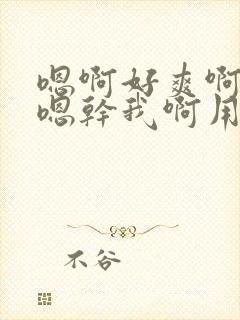 嗯啊好爽啊
嗯幹我啊用
不谷